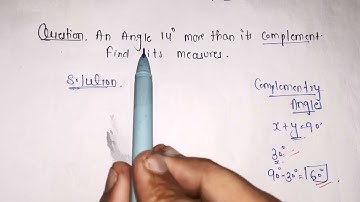 Question. An Angle 14° more than its Complement.
Find its measures.
Solution.
Complementry
Angles
x + y = 90°
30°
90°-30° = 60°